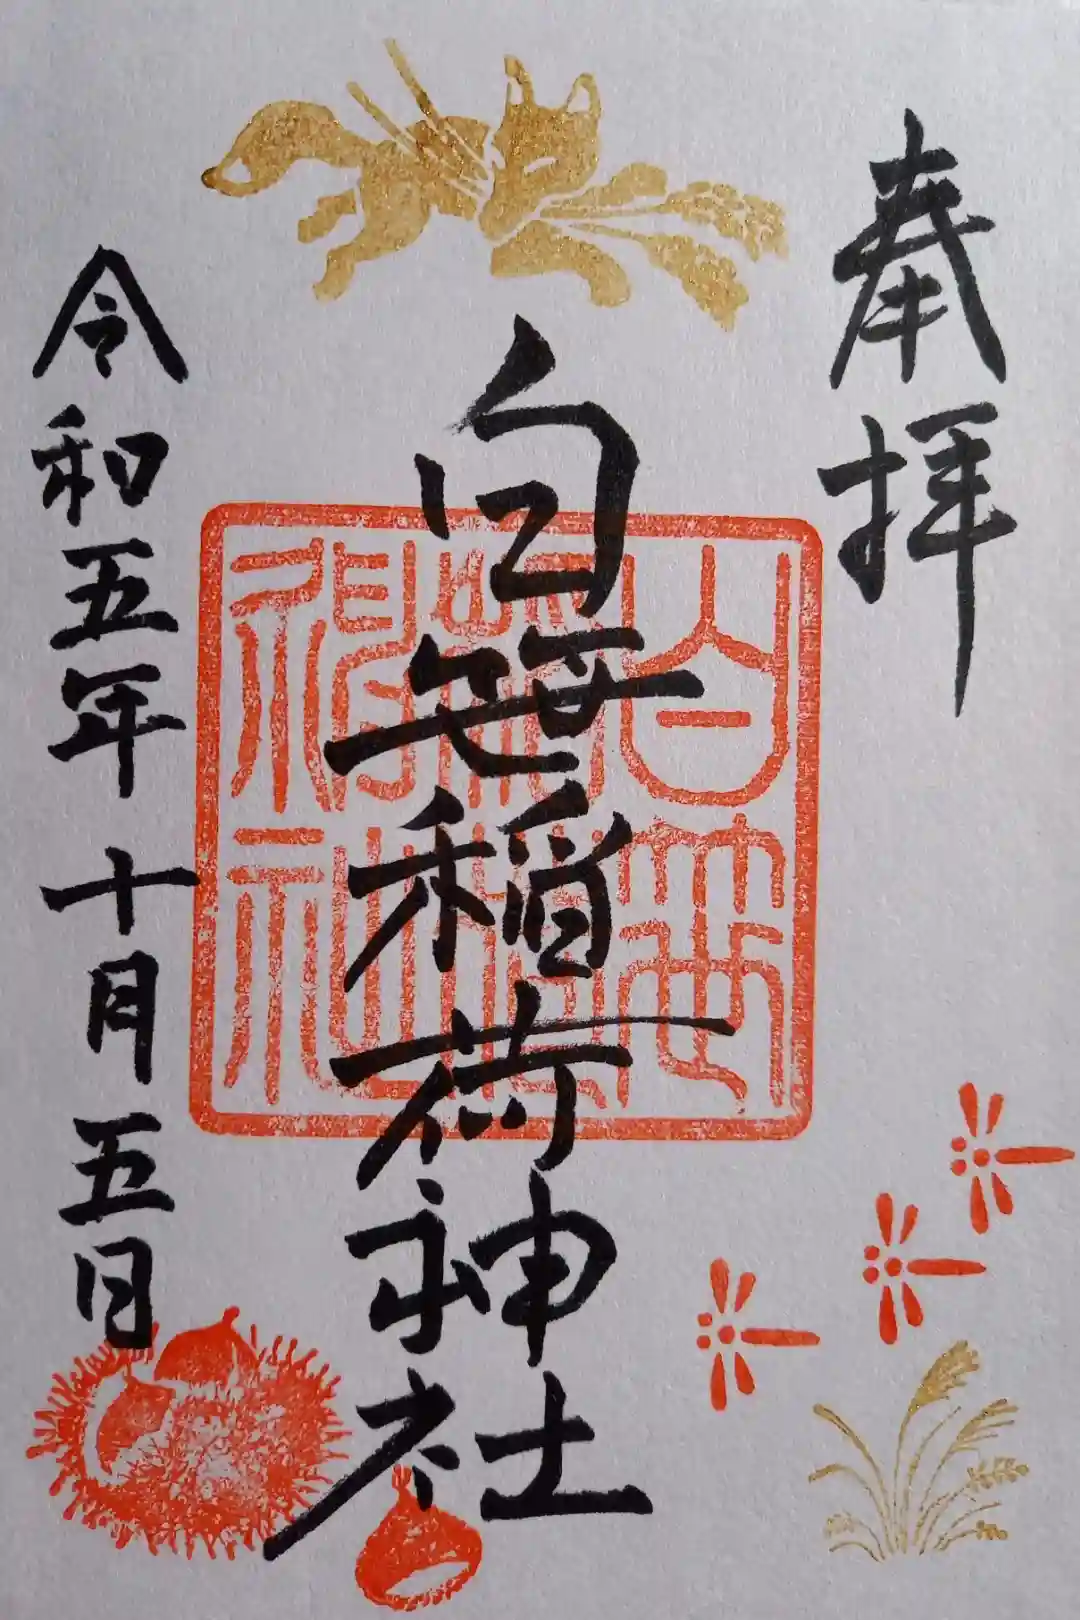 奉拝
白笹稲荷神社
白笹
稲荷
神社
令和五年十月五日